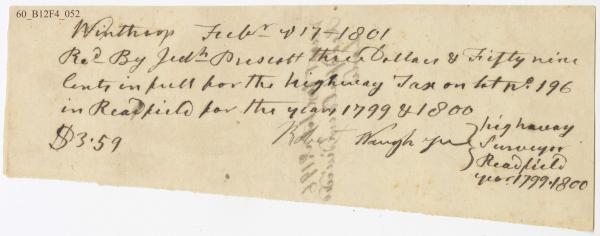 60_B12F4_052
Winthrop Febr. 17-1801
Recd By Jedh Prescott three Dollars & Fifty nine
Cents in full for the highway Tax on lot no. 196
in Readfield for the years 1799 & 1800
$3.59 Robert Waugh Jur } highway
Surveyor
Readfield
year 1799.1800